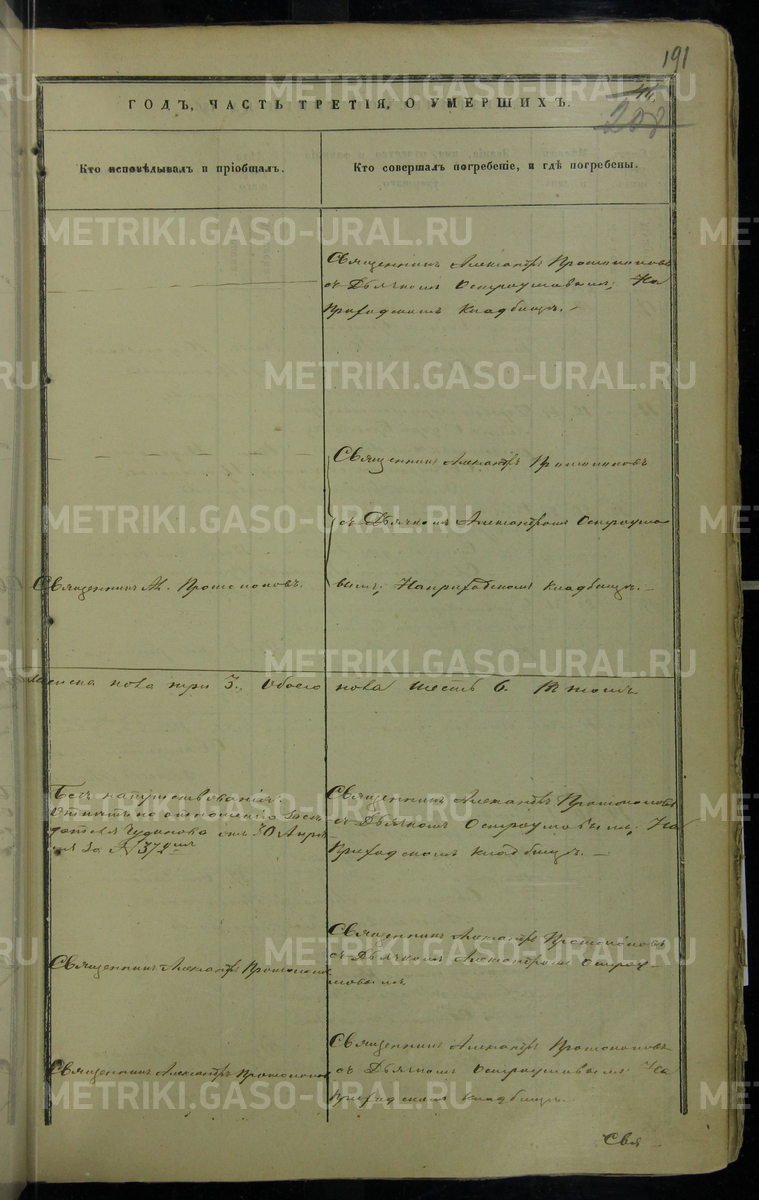 191
208
ГОДЪ, ЧАСТЬ ТРЕТІЯ, О УМЕРШИХЪ.
Кто исповѣдывалъ и пріобщалъ.
Кто совершалъ погребеніе, и гдѣ погребены.
Священникъ Александръ Протопоповъ
съ Дьячкомъ Остроумовымъ; На
Приходскомъ кладбищѣ. —
Священникъ Александръ Протопоповъ
съ Дьячкомъ Александромъ Остроумо
Священникъ Ал. Протопоповъ.
вымъ; На приходскомъ кладбищѣ. —
пола три 3., Обоего пола шесть 6.
Безъ напутствованія.
отношенію
Чудинова отъ 30 Апрѣ
ля за № 372
Священникъ Александръ Протопоповъ
съ Дьячкомъ Остроумовымъ; На
Приходскомъ кладбищѣ. —
Священникъ Александръ Протопопов
Священникъ Александръ Протопоповъ
съ Дьячкомъ Александромъ Остроу-
мовымъ
Священникъ Александръ Протопопов
Священникъ Александръ Протопоповъ
съ Дьячкомъ Остроумовымъ На
Приходскомъ кладбищѣ.
Свя
METRIKI.GASO-URAL.RU